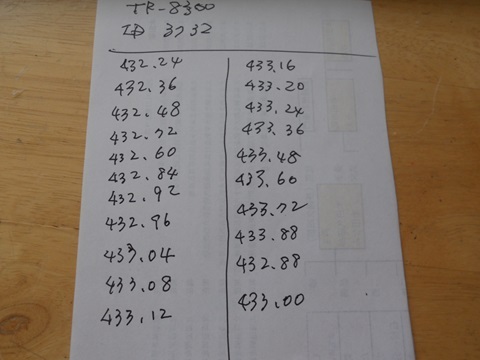 TR-8300
ID 3732
432.24
432.36
432.48
432.72
432.60
432.84
432.92
432.96
433.04
433.08
433.12
433.16
433.20
433.24
433.36
433.48
433.60
433.72
433.88
432.88
433.00